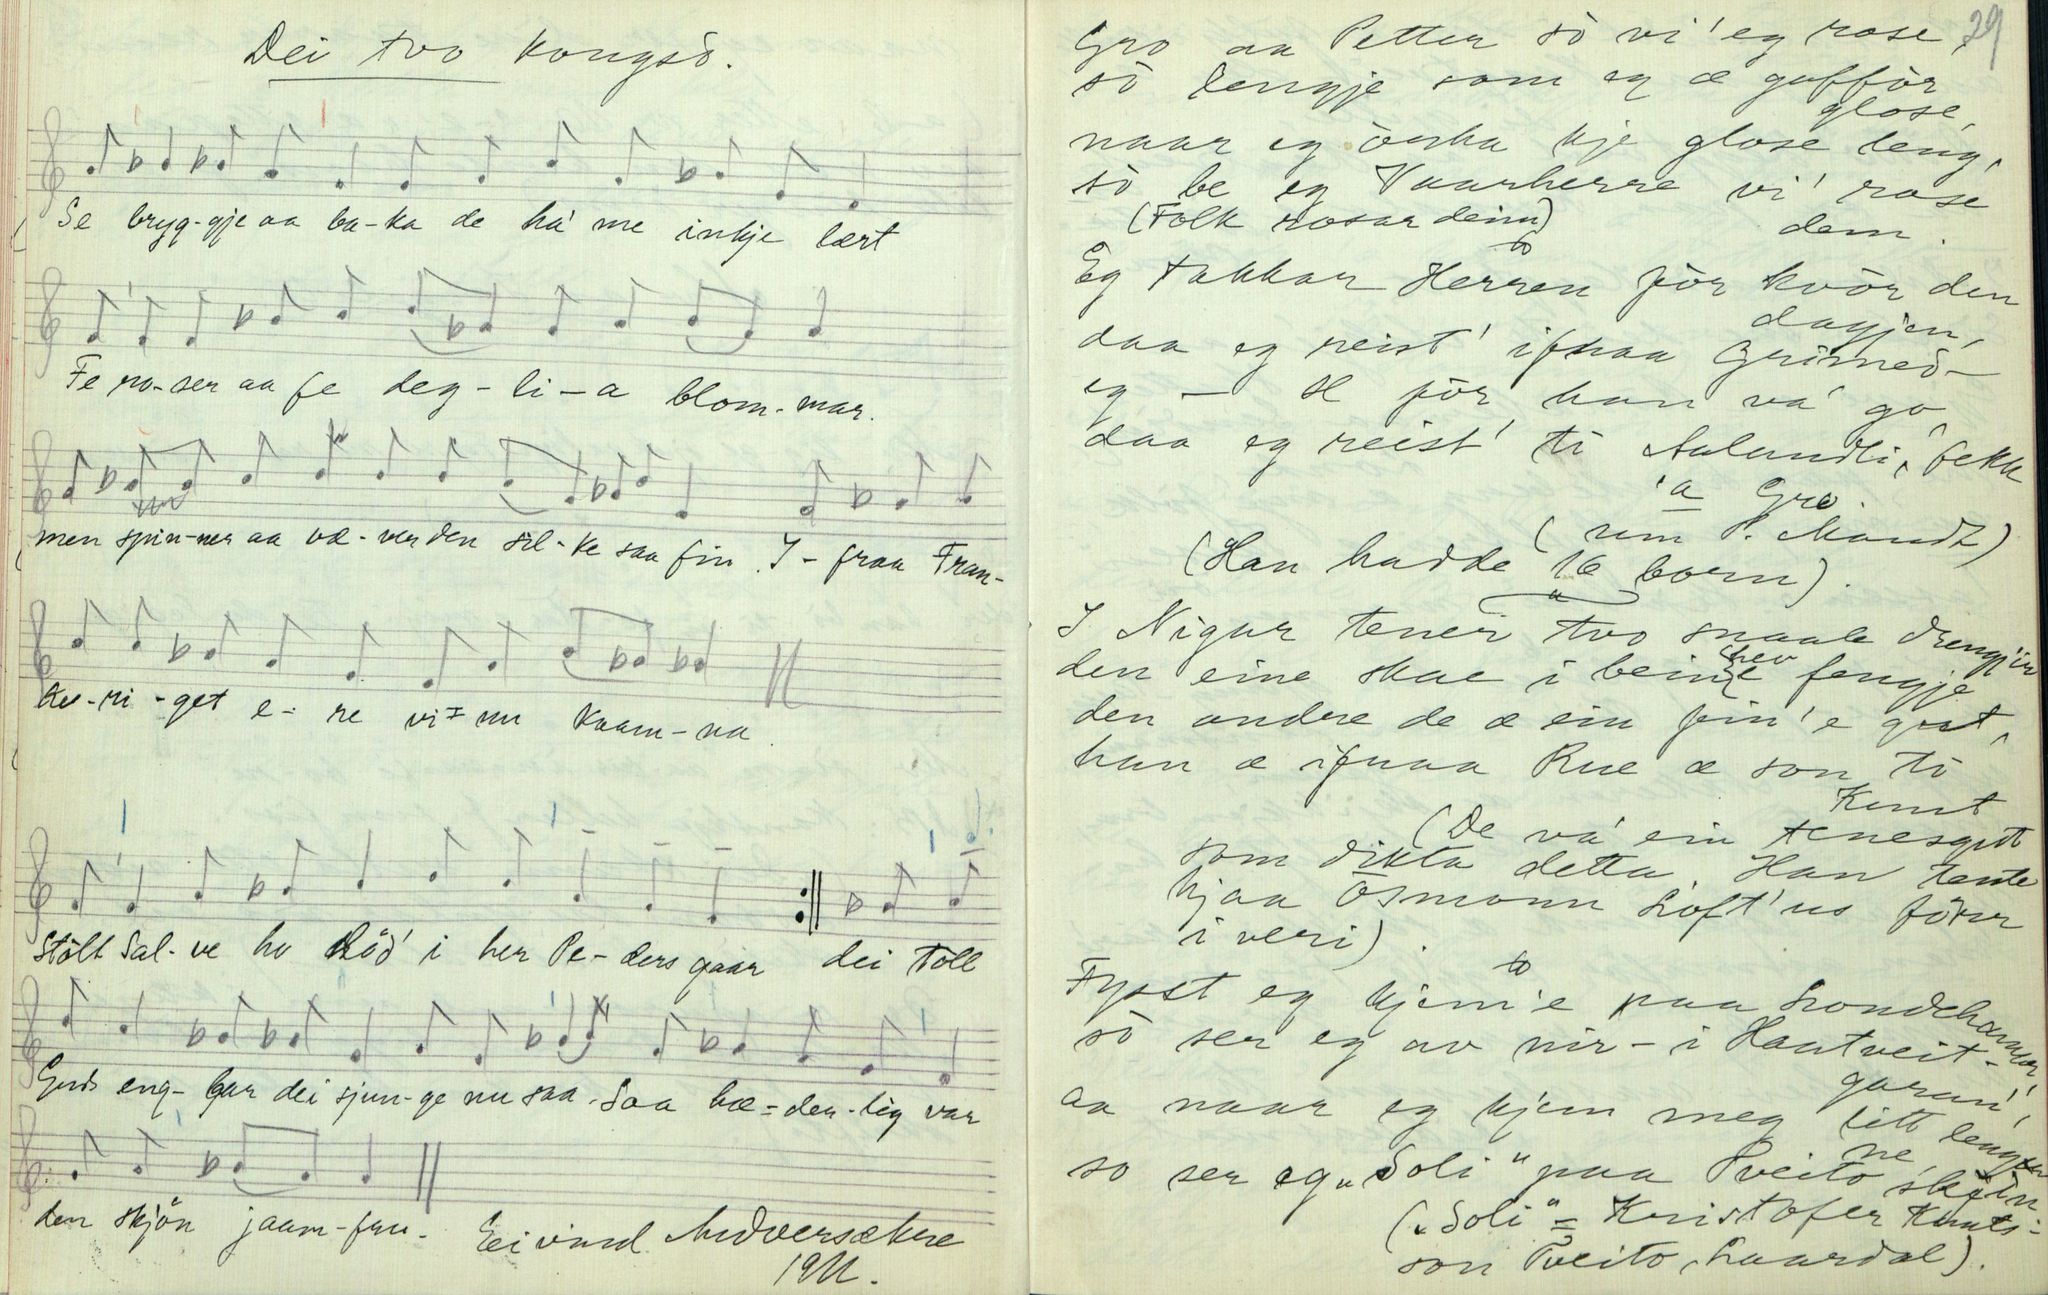 Dei två kongsò.
Se bryg-gje aa ba-ka de há me inkje lært
Fe ro-ser aa fe deg-li-a blom-mar.
men spin-ner aa væ-ver den sil-ke saa fin. I-fraa Fran-
ke-ri-get e-re vi nu kaam-na.
Stölt Sal-ve ho död' i her Pe-ders gaar dei toll
Guds eng-lar dei sjun-ge nu saa. Saa hæ-der-lig var
den skjön jaam-fru.
Eivind
1911.
29
Gro aa Petter sò vi' eg rose,
sò lengje som eg æ guffòr
glose,
naar eg òrka kje glose leng,
sò be eg Vaarherre vi' rose
dem.
(Folk rosar deim)
Eg takkar Herren fòr kvòr den
dagjen,
daa eg reist' ifraa Grimed-
eg – H fòr han va' go,
daa eg reist' ti Aalandli, fekk
'a Gro.
(um P. Mandt)
(Han hadde 16 born).
I Nigar tener tvo snaale drengjir
den eine skae i beine hev fengje
den andre de æ ein fin'e gut,
han æ ifraa Rue æ son ti
Knut
(De va' ein tenesgut
som dikta detta. Han tente
hjaa Òsmann Loft'us förr
i veri).
Fysst eg kjem'e paa
sò ser eg av nir-i Hautveit-
garan',
aa naar eg kjem meg litt lenger
ne,
so ser eg „Soli" paa Tveito skjin
(„Soli" = Kristofer Knuts-
son Tveito, Laardal).